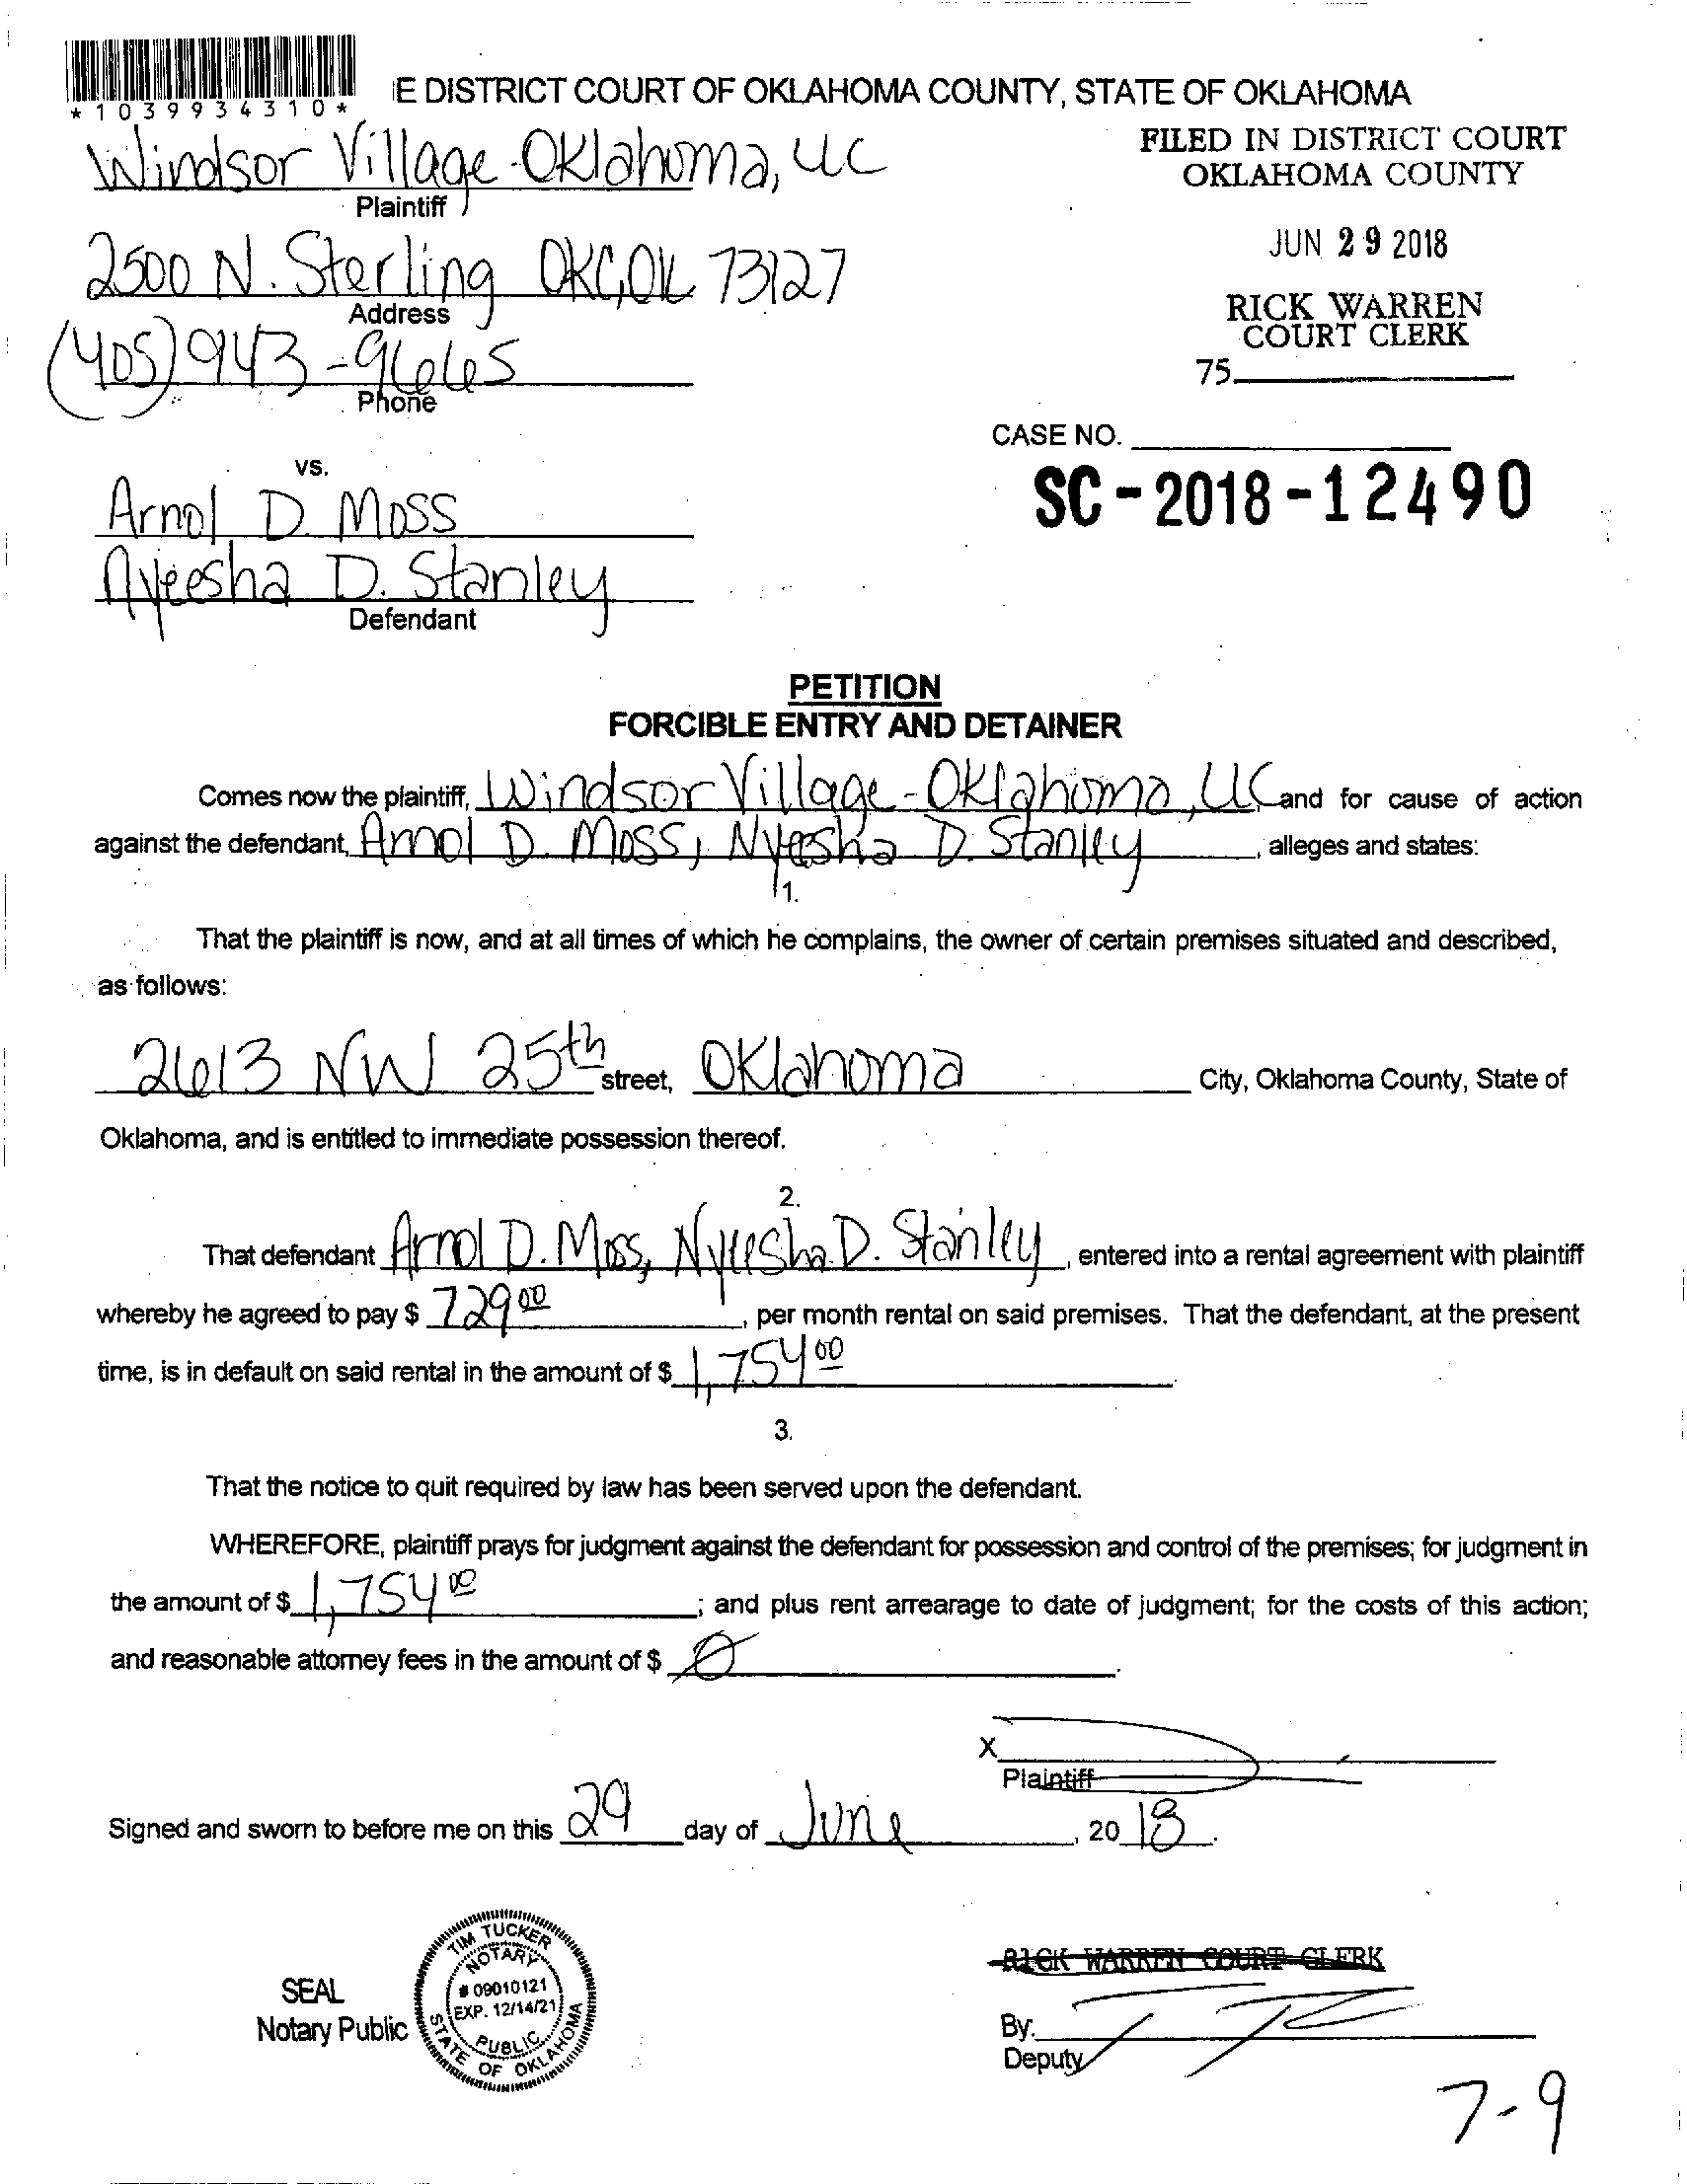 *1039934310*
E DISTRICT COURT OF OKLAHOMA COUNTY, STATE OF OKLAHOMA
Windsor Village-Oklahoma, LLC
Plaintiff
FILED IN DISTRICT COURT
OKLAHOMA COUNTY
2500 N. Sterling OKC, OK 73127
Address
JUN 29 2018
(405) 943-9665
Phone
RICK WARREN
COURT CLERK
75
CASE NO.
SC-2018-12490
vs.
Arnol D. Moss
Nyeesha D. Stanley
Defendant
PETITION
FORCIBLE ENTRY AND DETAINER
Comes now the plaintiff, Windsor Village-Oklahoma, LLC and for cause of action
against the defendant, Arnol D. Moss, Nyeesha D. Stanley, alleges and states:
1.
That the plaintiff is now, and at all times of which he complains, the owner of certain premises situated and described,
as follows:
2613 NW 25th street, Oklahoma City, Oklahoma County, State of
Oklahoma, and is entitled to immediate possession thereof.
2.
That defendant Arnol D. Moss, Nyeesha D. Stanley, entered into a rental agreement with plaintiff
whereby he agreed to pay $ 729 00, per month rental on said premises. That the defendant, at the present
time, is in default on said rental in the amount of $ 1,754 00.
3.
That the notice to quit required by law has been served upon the defendant.
WHEREFORE, plaintiff prays for judgment against the defendant for possession and control of the premises; for judgment in
the amount of $ 1,754 00; and plus rent arrearage to date of judgment; for the costs of this action;
and reasonable attorney fees in the amount of $ 0.
X
Plaintiff
Signed and sworn to before me on this 29 day of June, 2018.
SEAL
Notary Public
TIM TUCKER
NOTARY
# 09010121
EXP. 12/14/21
PUBLIC
STATE OF OKLAHOMA
RICK WARREN COURT CLERK
By:
Deputy
7-9